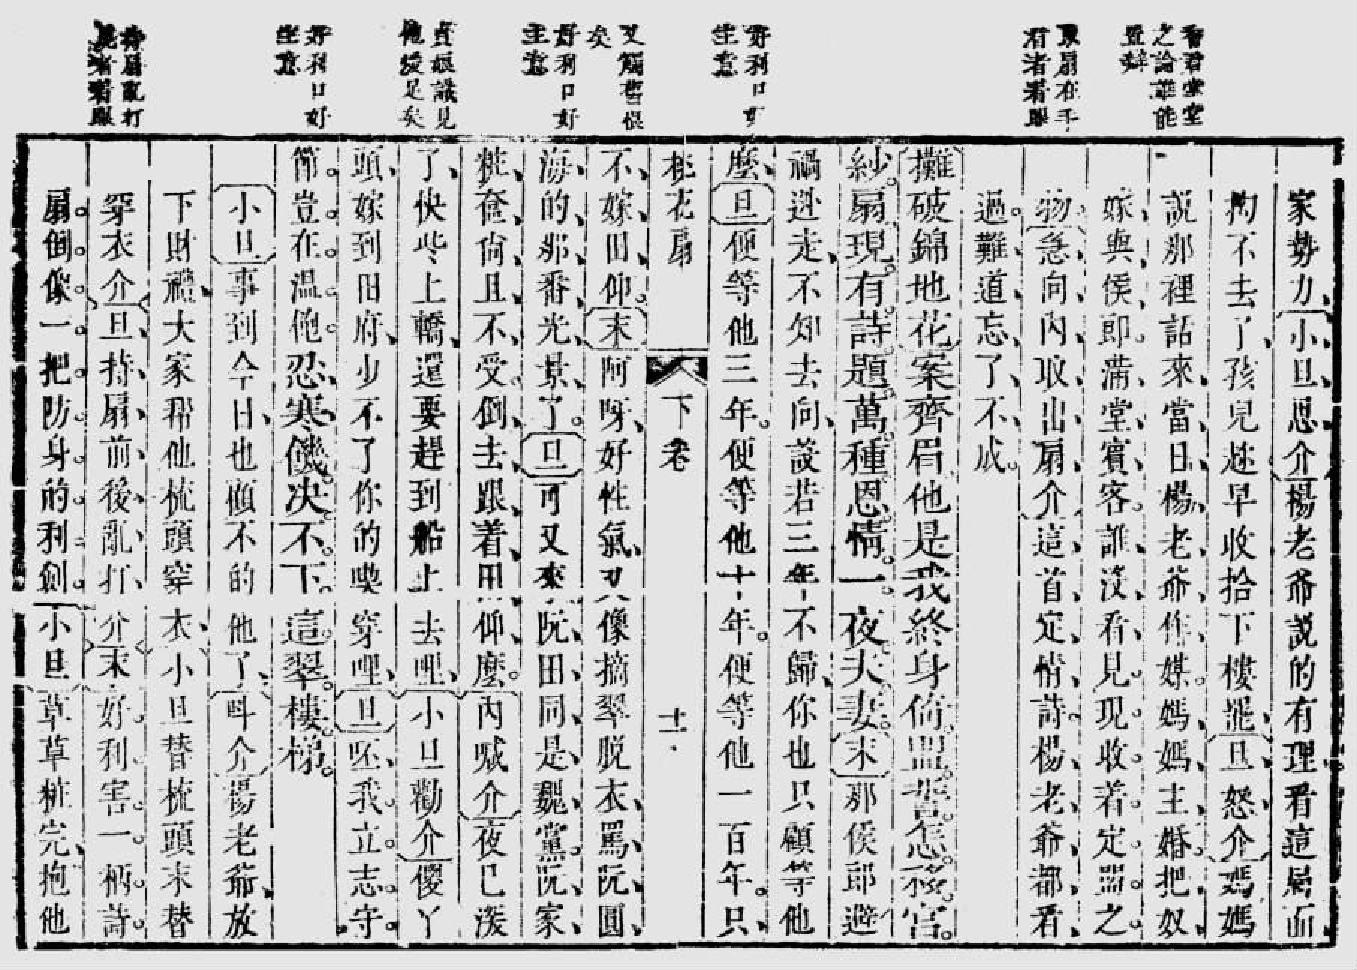 看君堂堂
之論誰能
置辯
眾扇在手
看者著眼
好利口好
生意
又觸舊恨
矣
好利口好
生意
貞娘識見
他緩足矣
好利口好
生意
持扇亂打
是者着眼
家勢力、小旦思介楊老爺説的有理、看這局面、
拘不去了、孩兒趂早收拾下樓罷、旦怒介媽媽
説那裡話來、當日楊老爺作媒、媽媽主婚、把奴
嫁與侯郎、滿堂賓客、誰沒看見、現收着定盟之
物。急向內取出扇介這首定情詩、楊老爺都看
過、難道忘了不成。
攤破錦地花案齊眉他是我終身倚。盟誓怎移。宮
紗扇現有詩題。萬種恩情。一夜夫妻。末那侯郎避
禍逃走、不知去向、設若三年不歸、你也只顧等他
麽、旦便等他三年。便等他十年。便等他一百年。只
桃花扇
下卷
十一
不嫁田仰。末阿呀、好性氣、又像摘翠脱衣、罵阮圓
海的、那番光景了。旦可又來、阮田同是魏黨、阮家
粧奩、尙且不受。倒去跟着田仰麽。內喊介夜已深
了、快些上轎、還要趕到船上去哩、小旦勸介傻丫
頭、嫁到田府、少不了你的喫穿哩、旦呸、我立志守
節。豈在溫飽。忍寒饑。决不下。這翠樓梯。
小旦事到今日、也顧不的他了、叫介楊老爺、放
下財禮、大家幫他梳頭穿衣、小旦替梳頭末替
穿衣介旦持扇前後亂打介末好利害。一柄詩
扇。倒像一把防身的利劍。小旦草草粧完、抱他